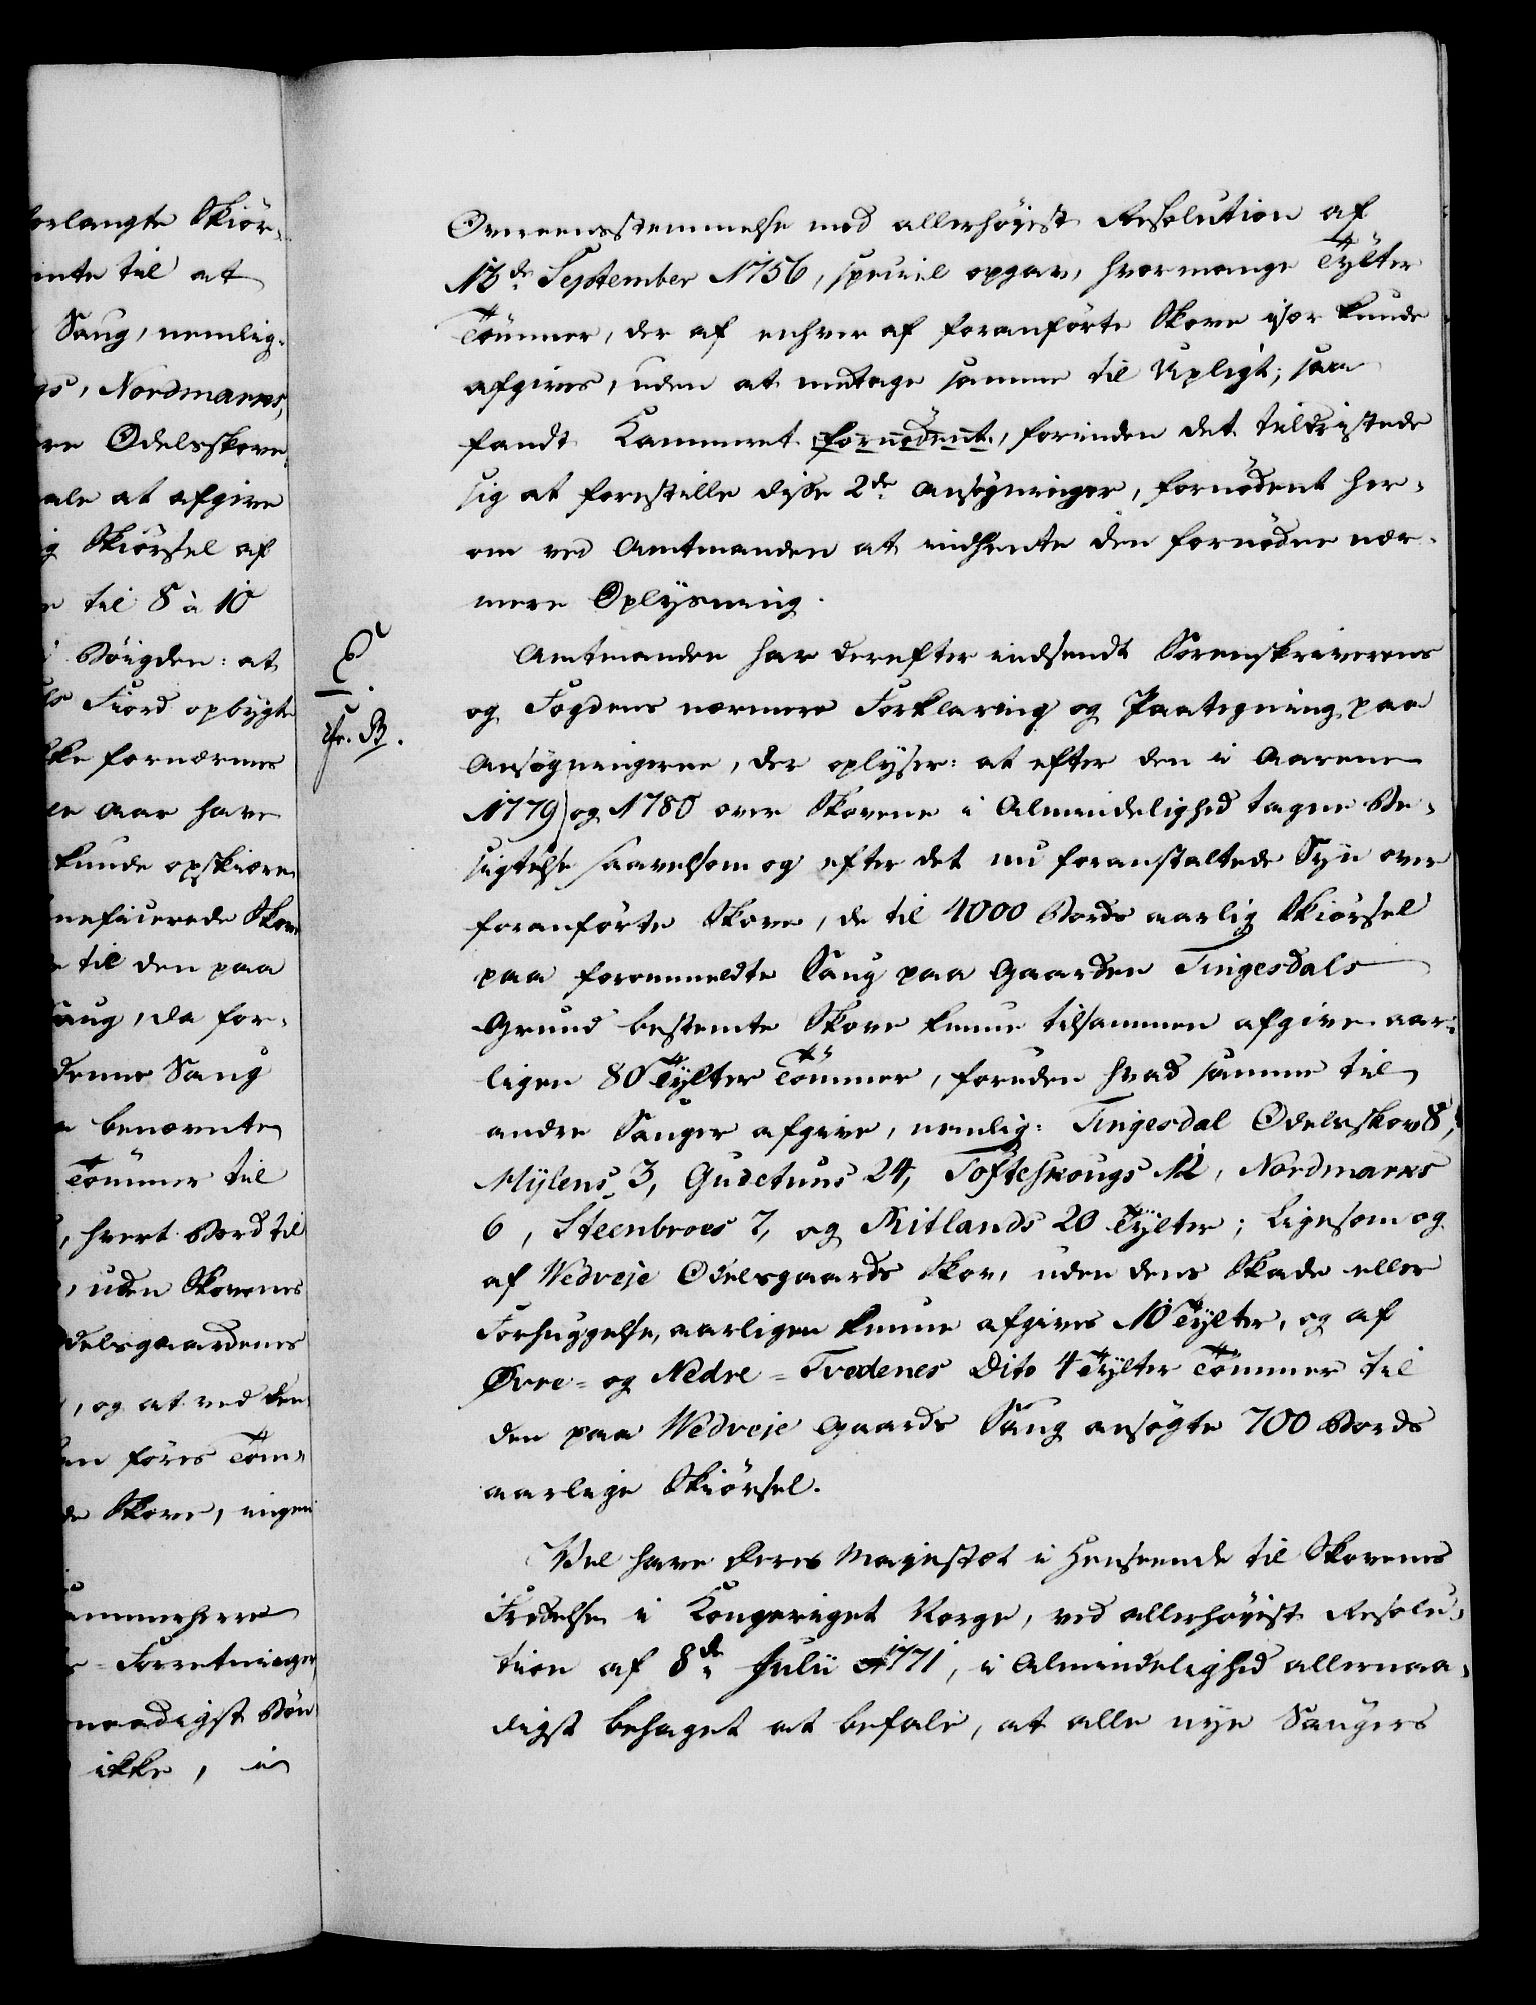 orlangte Skiör-
emte til at
Saug, nemlig:
gs, Nordmarks,
re Odelsskove
ale at afgive
ig Skiörsel af
til 8 à 10
Böigden: at
ls Fiord opbygte
kke fornærmes
le Aar have
kunde opskiære
neficerede Skove
til den paa
aug, da for-
denne Saug
benævnte
Tömmer til
, hvert Bord til
, uden Skovenes
delsgaardenes
, og at ved den
en föres Töm-
de Skove, ingen
ammerherre
Forretninger
naadigst Bön
ikke, i
Overeensstemmelse med allerhöjest Resolution af
13de September 1756, speciel opgav, hvormange Tylter
Tömmer, der af enhver af foranförte Skove især kunde
afgives, uden at medtage samme til Upligt; saa
fandt Kammeret fornödent, forinden det tildristede
sig at forestille disse 2de Ansögninger, fornödent her-
om ved Amtmanden at indhente den fornödne nær-
mere Oplysning.
E.
cfr. B.
Amtmanden har derefter indsendt Sorenskriverens
og Fogdens nærmere Forklaring og Paategning paa
Ansögningerne, der oplyser: at efter den i Aarene
1779 og 1780 over Skovene i Almindelighed tagne Be-
sigtelse saavelsom og efter det nu foranstaltede Syn over
foranförte Skove, de til 4000 Bords aarlig Skiörsel
paa forommeldte Saug paa Gaarden Tingesdals
Grund bestemte Skove kunne tilsammen afgive aar-
ligen 80 Tylter Tömmer, foruden hvad samme til
andre Sauger afgive, nemlig: Tingesdal Odelsskov 8,
Mylens 3, Gudetuns 24, Tofteskougs 12, Nordmarks
6, Steenbroes 7, og Ritlands 20 Tylter; Ligesom og
af Vedveje Odelsgaards Skov, uden dens Skade eller
Forhuggelse, aarligen kunne afgives 10 Tylter, og af
Øvre- og Nedre-Tvedenes Dito 4 Tylter Tömmer til
den paa Wedveje Gaards Saug ansögte 700 Bords
aarlige Skiörsel.
Vel have Deres Majestæt i Henseende til Skovenes
Fredelse i Kongeriget Norge, ved allerhöjest Resolu-
tion af 8de Julii 1771, i Almindelighed allernaa-
digst behaget at befale, at alle nye Saugers